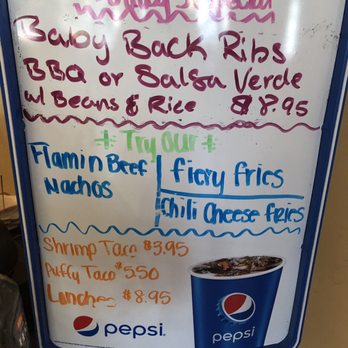 Special
Baby Back Ribs
BBQ or Salsa Verde
w/ Beans & Rice $8.95
Try our
Flamin Beef Nachos
fiery fries
Chili Cheese fries
Shrimp Taco $3.95
Puffy Taco $5.50
Lunches $8.95
pepsi
pepsi